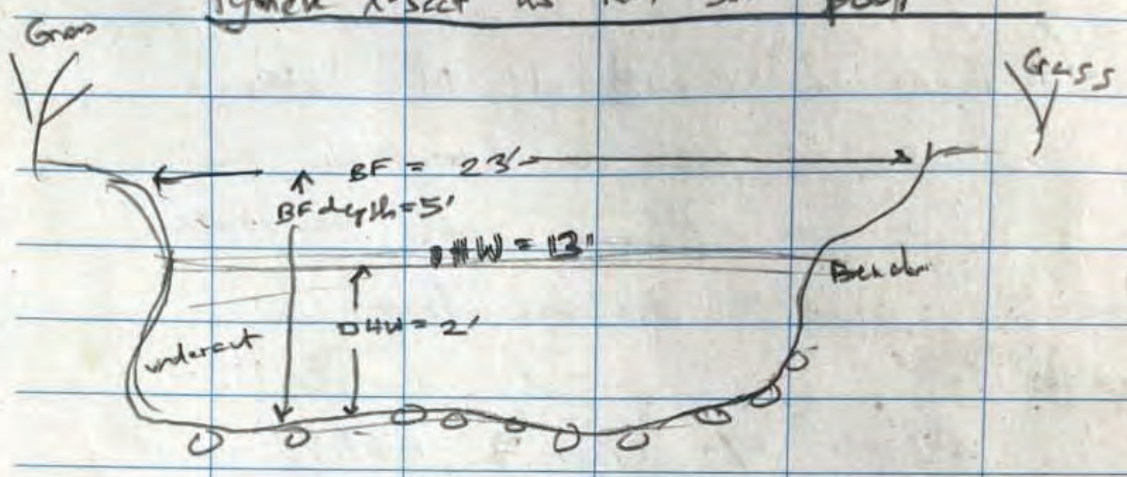 Typical X-sect
Grass
Grass
BF = 23'
BF depth = 5'
OHW = 13'
Bench
OHW = 2'
undercut